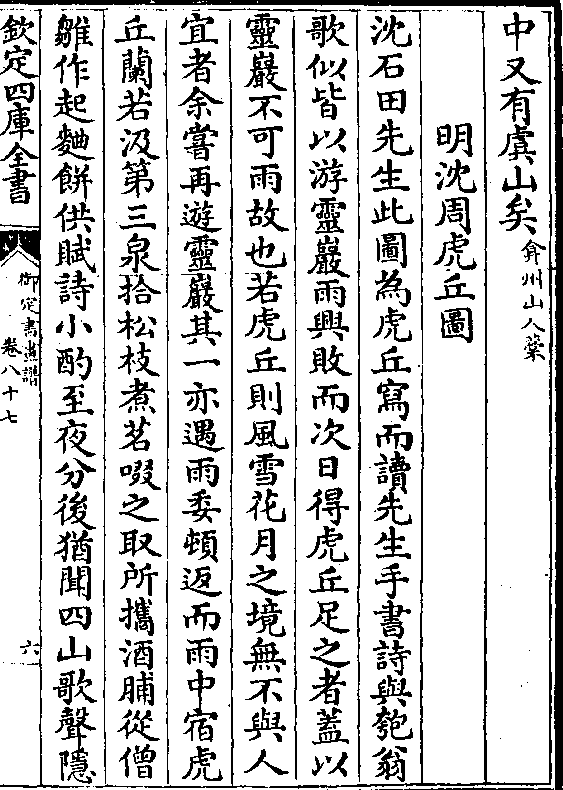 中又有虞山矣弇州山人藁
明沈周虎丘圖
沈石田先生此圖為虎丘寫而讀先生手書詩與匏翁
歌似皆以游靈巖雨興敗而次日得虎丘足之者蓋以
靈巖不可雨故也若虎丘則風雪花月之境無不與人
宜者余嘗再遊靈巖其一亦遇雨委頓返而雨中宿虎
丘蘭若汲第三泉拾松枝煮茗啜之取所攜酒脯從僧
雛作起麵餅供賦詩小酌至夜分後猶聞四山歌聲隱
欽定四庫全書
御定書畫譜
卷八十七
六